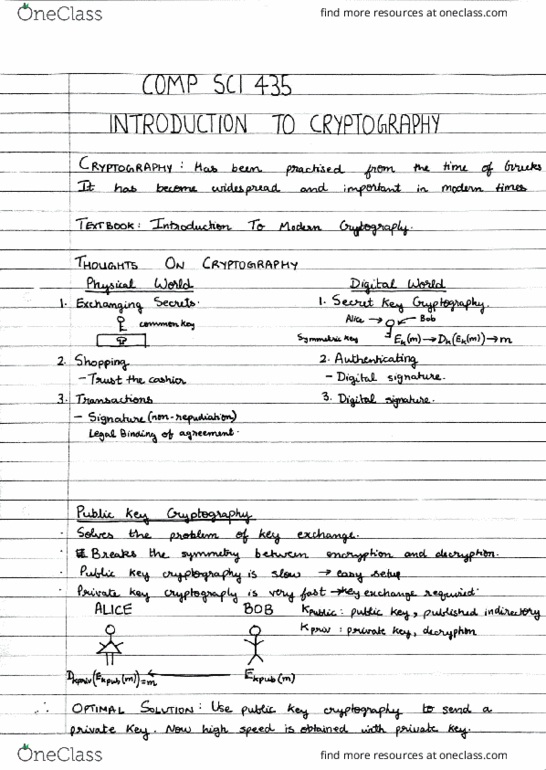 OneClass
find more resources at oneclass.com
COMP SCI 435
INTRODUCTION TO CRYPTOGRAPHY
CRYPTOGRAPHY: Has been practised from the time of Greeks
It has become widespread and important in modern times
TEXTBOOK: Introduction To Modern Cryptography.
THOUGHTS ON CRYPTOGRAPHY
Physical World
Digital World
1. Exchanging Secrets.
1. Secret Key Cryptography.
Alice → ← Bob
common key
Symmetric key
Ek(m) → Dk(Ek(m)) → m
2. Shopping
2. Authenticating
- Trust the cashier
- Digital signature.
3. Transactions
3. Digital signature.
- Signature (non-repudiation)
Legal Binding of agreement.
Public Key Cryptography
· Solves the problem of key exchange.
· Breaks the symmetry between encryption and decryption.
· Public key cryptography is slow → easy setup
· Private key cryptography is very fast → key exchange required.
ALICE
BOB
Kpublic: public key, published in directory
Kpriv: private key, decryption
Dkpriv(Ekpub(m))=m
Ekpub(m)
∴ OPTIMAL SOLUTION: Use public key cryptography to send a
private key. Now high speed is obtained with private key.
OneClass
find more resources at oneclass.com